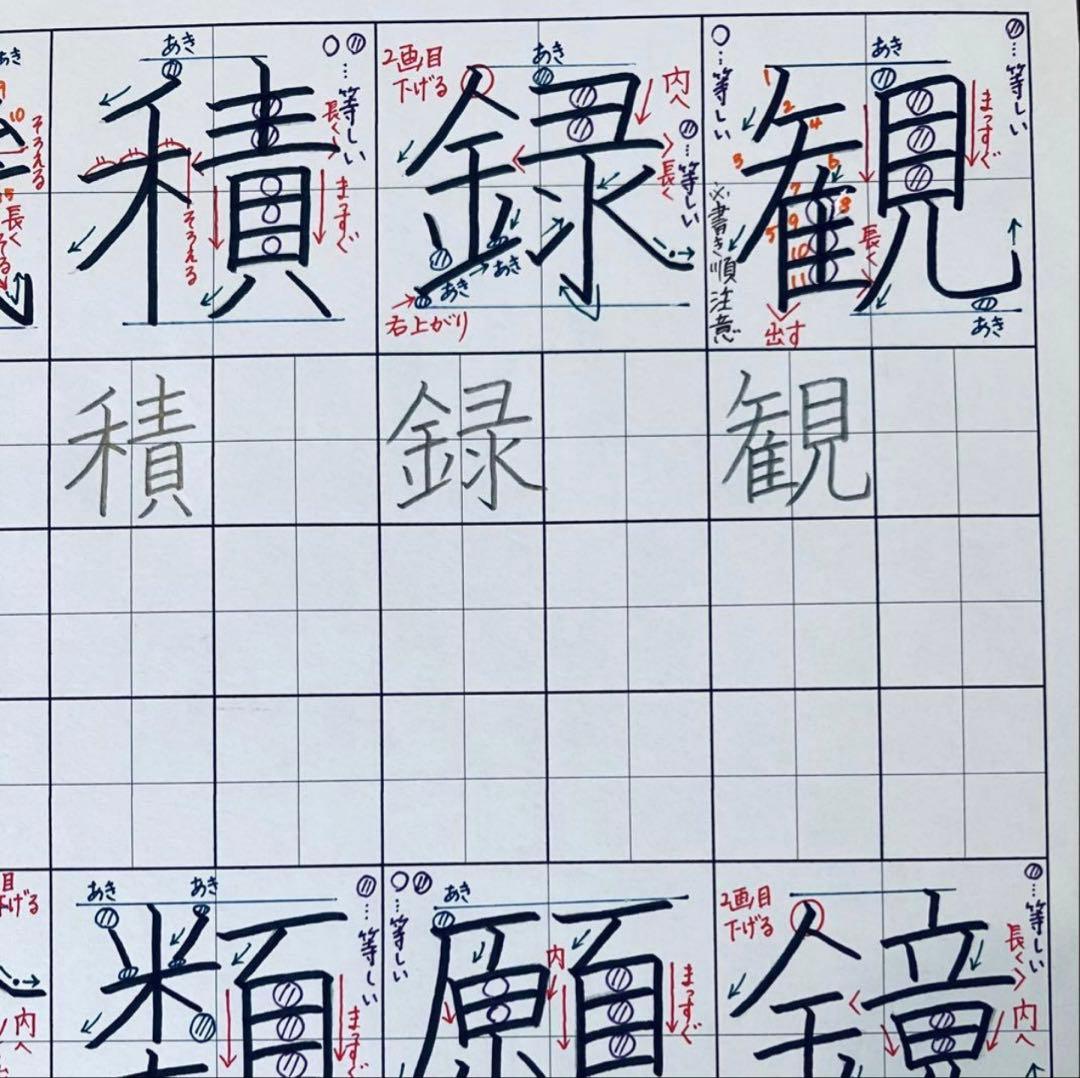 観
あき
…等しい
…等しい
まっすぐ
長く
出す
あき
※書き順注意
1
2
3
4
5
6
7
8
9
10
11
録
2画目
下げる
あき
内へ
…等しい
長く
あき
あき
右上がり
積
あき
…等しい
長く
まっすぐ
そろえる
あき
10
そろえる
長く
観
録
積
鏡
2画目
下げる
…等しい
長く
内へ
願
あき
…等しい
内へ
まっすぐ
類
あき
あき
…等しい
まっすぐ
目
げる
内へ